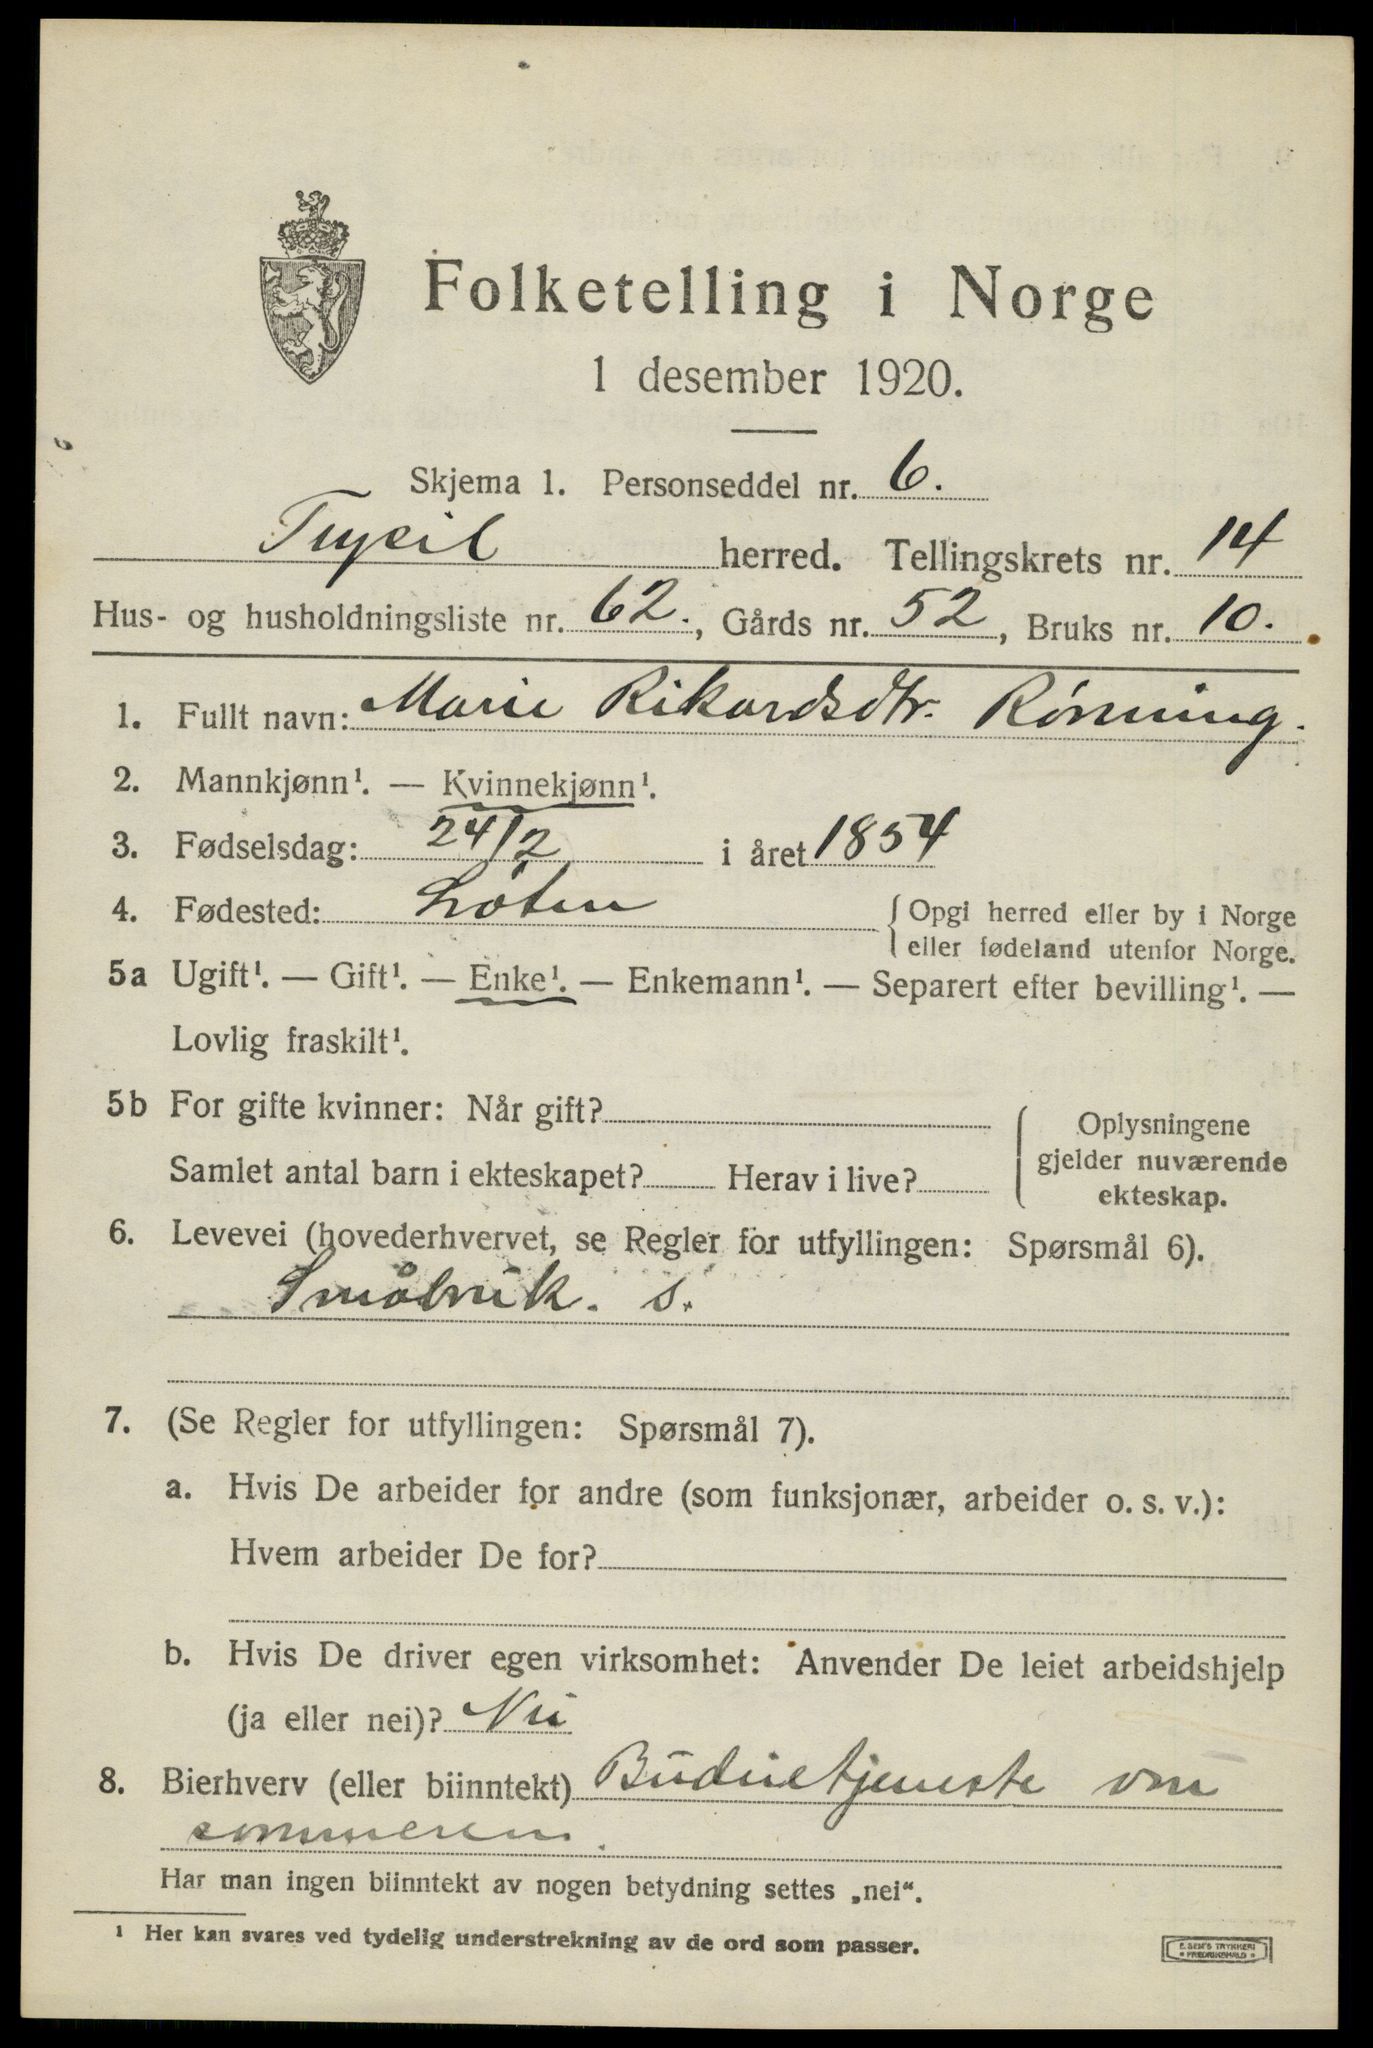 Folketelling i Norge
1 desember 1920.
Skjema 1. Personseddel nr. 6.
Trysil herred. Tellingskrets nr. 14
Hus- og husholdningsliste nr. 62., Gårds nr. 52, Bruks nr. 10.
1. Fullt navn: Marie Rikardsdtr. Rönning.
2. Mannkjønn¹. — Kvinnekjønn¹.
3. Fødselsdag: 24/2 i året 1854
4. Fødested: Löten { Opgi herred eller by i Norge
eller fødeland utenfor Norge.
5a Ugift¹. — Gift¹. — Enke¹. — Enkemann¹. — Separert efter bevilling¹. —
Lovlig fraskilt¹.
5b For gifte kvinner: Når gift?
Samlet antal barn i ekteskapet? Herav i live?
Oplysningene
gjelder nuværende
ekteskap.
6. Levevei (hovederhvervet, se Regler for utfyllingen: Spørsmål 6).
Småbruk. s.
7. (Se Regler for utfyllingen: Spørsmål 7).
a. Hvis De arbeider for andre (som funksjonær, arbeider o. s. v.):
Hvem arbeider De for?
b. Hvis De driver egen virksomhet: Anvender De leiet arbeidshjelp
(ja eller nei)? Nei
8. Bierhverv (eller biinntekt) Budeietjeneste om
sommeren.
Har man ingen biinntekt av nogen betydning settes „nei“.
¹ Her kan svares ved tydelig understrekning av de ord som passer.
E. SEM'S TRYKKERI
* FREDRIKSHALD *